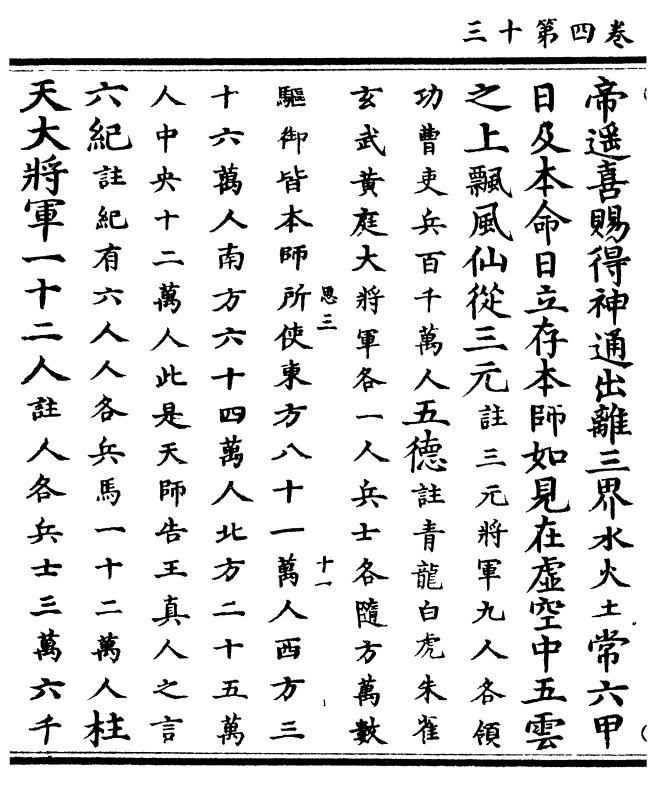 卷四第十三
帝遥喜賜得神通出離三界水火土常六甲
日及本命日立存本師如見在虛空中五雲
之上飄風仙從三元註三元將軍九人各領
功曹吏兵百千萬人五德註青龍白虎朱雀
玄武黃庭大將軍各一人兵士各隨方萬數
思三 十一
驅御皆本師所使東方八十一萬人西方三
十六萬人南方六十四萬人北方二十五萬
人中央十二萬人此是天師告王真人之言
六紀註紀有六人人各兵馬一十二萬人柱
天大將軍一十二人註人各兵士三萬六千